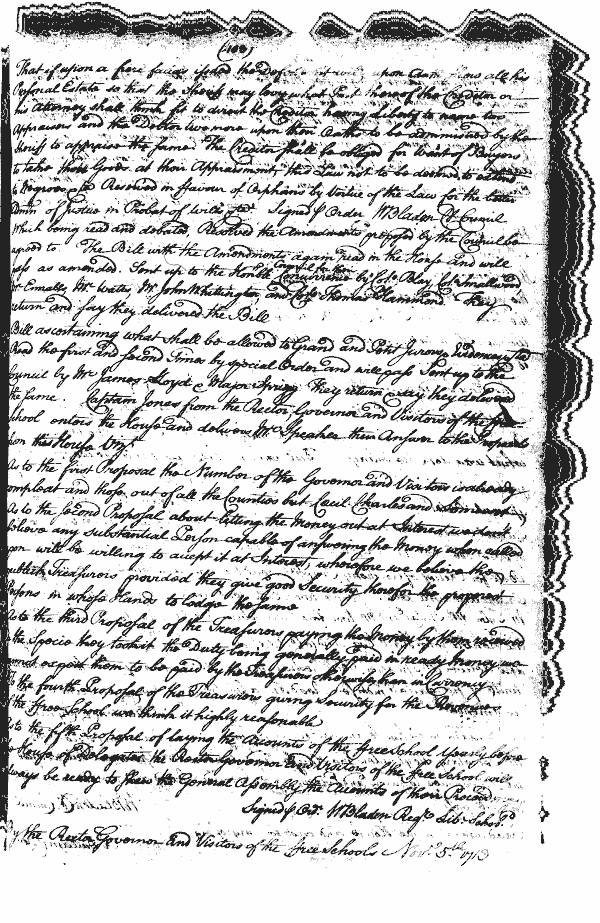 (108)
That if upon a fiere facias issued the Def upon Oath shews all his
Personal Estate so that the Sheriff may levy what Part thereof the Creditor or
his Attorney shall think fit to direct the Creditor having liberty to name two
Appraisers and the Debtor two more upon their Oaths to be administred by the
Sheriff to appraise the same. The Creditor shall be obliged for Want of Buyers
to take those Goods at their Appraisment, this Law not to be deemed to extend
to Negroes Recovered in ffavour of Orphans by Vertue of the Law for the better
Admin of Justice in Probat of wills &ca Signed p Order WBladen Cl Council
Which being read and debated, Resolved the Amendments proposed by the Council be
agreed to. The Bill with the Amendments again read in the House and will
pass as amended. Sent up to the Honble Council for their Concurrence by Colo Blay, Colo Smallwood
Mr Watts Mr John Whittington and Thomas Hammond. They
return and say they delivered the Bill
Bill ascertaining what shall be allowed to Grand and Petit Jurors Evidences &ca
Read the first and second Times by special Order and will pass Sent up to the
Council by Mr James Lloyd Major They return say they delivered
the same. Captain Jones from the Rector, Governor and Visitors of the free
School enters the House and delivers Mr Speaker their Answer to the Proposals
from this House Vizt
As to the first Proposal the Number of the Governor and Visitors is already
compleat and those out of all the Counties but Cecil Charles and Somerset
As to the second Proposal about letting the Money out at Interest we don't
believe any substantial Person capable of answering the Money when called
upon will be willing to accept it at Interest, wherefore we believe the
publick Treasurers provided they give good Security therefor the properest
Persons in whose Hands to lodge the same
As to the third Proposal of the Treasurers paying the Money by them received
in the Specie they took it the Duty being generally paid in ready money we
cannot expect them to be paid by the Treasurers otherwise than in Currency
To the fourth Proposal of the Treasurers giving Security for the Revenues
of the ffree School we think it highly reasonable
As to the fifth Proposal of laying the Accounts of the ffree School yearly before
the House of Delegates the Rector Governor and Visitors of the free School will
always be ready to shew the General Assembly the Accounts of their Proceed
Signed p Ord. WBladen Regr Lib: School
By the Rector Governor and Visitors of the ffree Schools Novr 5th 1713